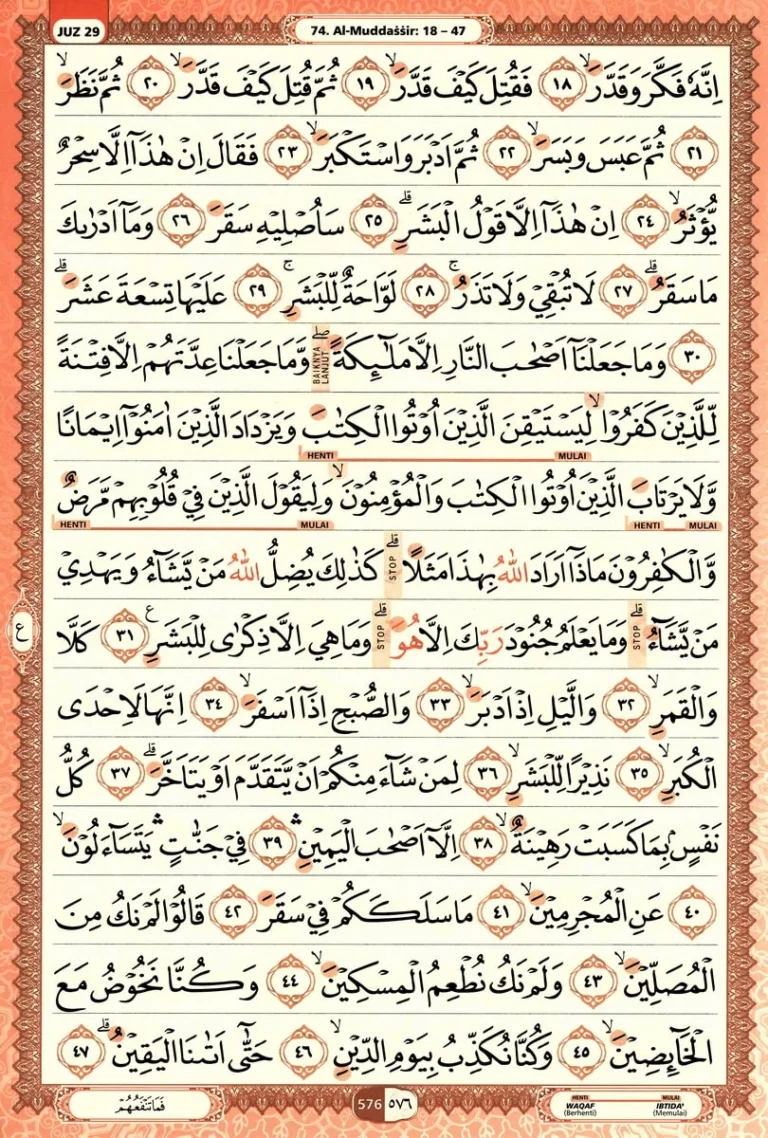 JUZ 29
74. Al-Muddaṡṡir: 18 – 47
اِنَّهٗ فَكَّرَ وَقَدَّرَۙ ١٨ فَقُتِلَ كَيْفَ قَدَّرَۙ ١٩ ثُمَّ قُتِلَ كَيْفَ قَدَّرَۙ ٢٠ ثُمَّ نَظَرَۙ
٢١ ثُمَّ عَبَسَ وَبَسَرَۙ ٢٢ ثُمَّ اَدْبَرَ وَاسْتَكْبَرَۙ ٢٣ فَقَالَ اِنْ هٰذَآ اِلَّا سِحْرٌ
يُّؤْثَرُۙ ٢٤ اِنْ هٰذَآ اِلَّا قَوْلُ الْبَشَرِۗ ٢٥ سَاُصْلِيْهِ سَقَرَ ٢٦ وَمَآ اَدْرٰىكَ
مَا سَقَرُۗ ٢٧ لَا تُبْقِيْ وَلَا تَذَرُۚ ٢٨ لَوَّاحَةٌ لِّلْبَشَرِۚ ٢٩ عَلَيْهَا تِسْعَةَ عَشَرَۗ
٣٠ وَمَا جَعَلْنَآ اَصْحٰبَ النَّارِ اِلَّا مَلٰۤىِٕكَةًۖ BAIKNYA LANJUT وَّمَا جَعَلْنَا عِدَّتَهُمْ اِلَّا فِتْنَةً
لِّلَّذِيْنَ كَفَرُوْاۙ لِيَسْتَيْقِنَ الَّذِيْنَ اُوْتُوا الْكِتٰبَ وَيَزْدَادَ الَّذِيْنَ اٰمَنُوْٓا اِيْمَانًا
HENTI MULAI
وَّلَا يَرْتَابَ الَّذِيْنَ اُوْتُوا الْكِتٰبَ وَالْمُؤْمِنُوْنَۙ وَلِيَقُوْلَ الَّذِيْنَ فِيْ قُلُوْبِهِمْ مَّرَضٌ
HENTI MULAI HENTI MULAI
وَّالْكٰفِرُوْنَ مَاذَآ اَرَادَ اللّٰهُ بِهٰذَا مَثَلًاۗ STOP كَذٰلِكَ يُضِلُّ اللّٰهُ مَنْ يَّشَاۤءُ وَيَهْدِيْ
مَنْ يَّشَاۤءُۗ STOP وَمَا يَعْلَمُ جُنُوْدَ رَبِّكَ اِلَّا هُوَۗ STOP وَمَا هِيَ اِلَّا ذِكْرٰى لِلْبَشَرِ ع ٣١ كَلَّا
ع
وَالْقَمَرِۙ ٣٢ وَالَّيْلِ اِذْ اَدْبَرَۙ ٣٣ وَالصُّبْحِ اِذَآ اَسْفَرَۙ ٣٤ اِنَّهَا لَاِحْدَى
الْكُبَرِۙ ٣٥ نَذِيْرًا لِّلْبَشَرِۙ ٣٦ لِمَنْ شَاۤءَ مِنْكُمْ اَنْ يَّتَقَدَّمَ اَوْ يَتَاَخَّرَۗ ٣٧ كُلُّ
نَفْسٍۢ بِمَا كَسَبَتْ رَهِيْنَةٌۙ ٣٨ اِلَّآ اَصْحٰبَ الْيَمِيْنِۛ ٣٩ فِيْ جَنّٰتٍۛ يَتَسَاۤءَلُوْنَۙ
٤٠ عَنِ الْمُجْرِمِيْنَۙ ٤١ مَا سَلَكَكُمْ فِيْ سَقَرَ ٤٢ قَالُوْا لَمْ نَكُ مِنَ
الْمُصَلِّيْنَۙ ٤٣ وَلَمْ نَكُ نُطْعِمُ الْمِسْكِيْنَۙ ٤٤ وَكُنَّا نَخُوْضُ مَعَ
الْخَاۤىِٕضِيْنَۙ ٤٥ وَكُنَّا نُكَذِّبُ بِيَوْمِ الدِّيْنِۙ ٤٦ حَتّٰىٓ اَتٰىنَا الْيَقِيْنُۗ ٤٧
فَمَا تَنْفَعُهُمْ
576 ٥٧٦
HENTI MULAI
WAQAF IBTIDA'
(Berhenti) (Memulai)